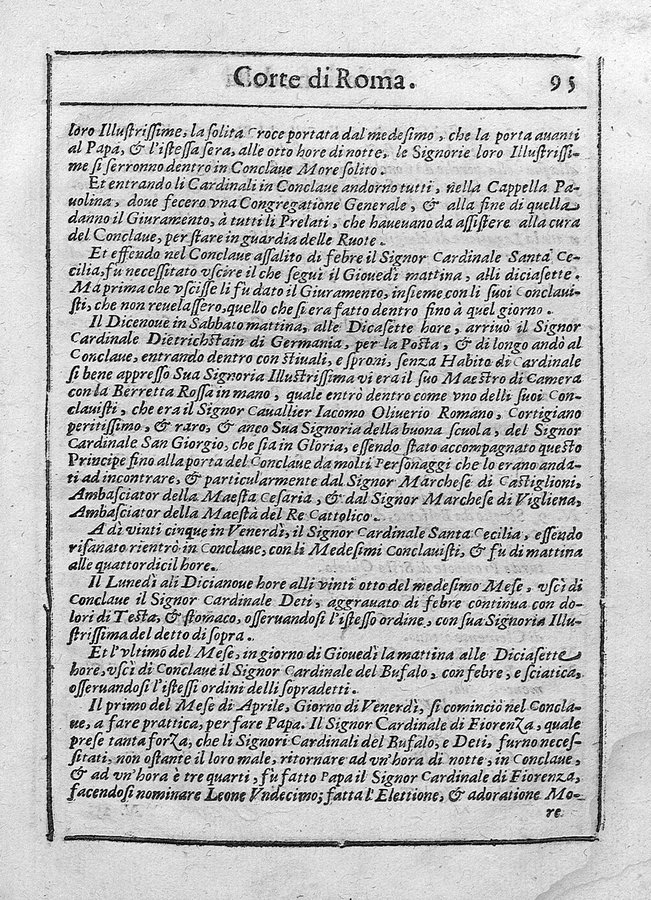 Corte di Roma. 95
loro Illuſtriſſime, la ſolita Croce portata dal medeſimo, che la porta auanti
al Papa, & l'iſteſſa ſera, alle otto hore di notte, le Signorie loro Illuſtriſſi-
me ſi ſerronno dentro in Conclaue More ſolito.
Et entrando li Cardinali in Conclaue andorno tutti, nella Cappella Pa-
uolina, doue fecero vna Congregatione Generale, & alla fine di quella
danno il Giuramento, à tutti li Prelati, che haueuano da aſſiſtere alla cura
del Conclaue, per ſtare in guardia delle Ruote.
Et eſſendo nel Conclaue aſſalito di febre il Signor Cardinale Santa Ce-
cilia, fu neceſſitato vſcire il che seguì il Giouedì mattina, alli diciaſette.
Ma prima che vſciſſe li fu dato il Giuramento, inſieme con li ſuoi Conclaui-
ſti, che non reuelaſſero, quello che ſi era fatto dentro fino à quel giorno.
Il Dicenoue in Sabbato mattina, alle Dicaſette hore, arriuò il Signor
Cardinale Dietrichſtain di Germania, per la Poſta, & di longo andò al
Conclaue, entrando dentro con ſtiuali, e ſproni, ſenza Habito di Cardinale
ſi bene appreſſo Sua Signoria Illuſtriſſima vi era il ſuo Maeſtro di Camera
con la Berretta Roſſa in mano, quale entrò dentro come vno delli ſuoi Con-
clauiſti, che era il Signor Cauallier Iacomo Oliuerio Romano, Cortigiano
peritiſſimo, & raro, & anco Sua Signoria della buona ſcuola, del Signor
Cardinale San Giorgio, che ſia in Gloria, eſſendo ſtato accompagnato queſto
Principe fino alla porta del Conclaue da molti Perſonaggi che lo erano anda-
ti ad incontrare, & particularmente dal Signor Marcheſe di Caſtiglioni,
Ambaſciator della Maeſtà Ceſaria, & dal Signor Marcheſe di Vigliena,
Ambaſciator della Maeſtà del Re Cattolico.
A dì vinti cinque in Venerdì, il Signor Cardinale Santa Cecilia, eſſendo
riſanato rientrò in Conclaue, con li Medeſimi Conclauiſti, & fu di mattina
alle quattordici hore.
Il Lunedì ali Dicianoue hore alli vinti otto del medeſimo Meſe, vſcì di
Conclaue il Signor Cardinale Deti, aggrauato di febre continua con do-
lori di Teſta, & ſtomaco, oſſeruandoſi l'iſteſſo ordine, con ſua Signoria Illu-
ſtriſſima del detto di ſopra.
Et l'vltimo del Meſe, in giorno di Giouedì la mattina alle Diciaſette
hore, vſcì di Conclaue il Signor Cardinale del Bufalo, con febre, e ſciatica,
oſſeruandoſi l'iſteſſi ordini delli ſopradetti.
Il primo del Meſe di Aprile, Giorno di Venerdì, ſi cominciò nel Concla-
ue, a fare prattica, per fare Papa. Il Signor Cardinale di Fiorenza, quale
preſe tanta forza, che li Signori Cardinali del Bufalo, e Deti, furno neceſ-
ſitati, non oſtante il loro male, ritornare ad vn'hora di notte, in Conclaue,
& ad vn'hora è tre quarti, fù fatto Papa il Signor Cardinale di Fiorenza,
facendoſi nominare Leone Vndecimo; fatta l'Elettione, & adoratione Mo-
re